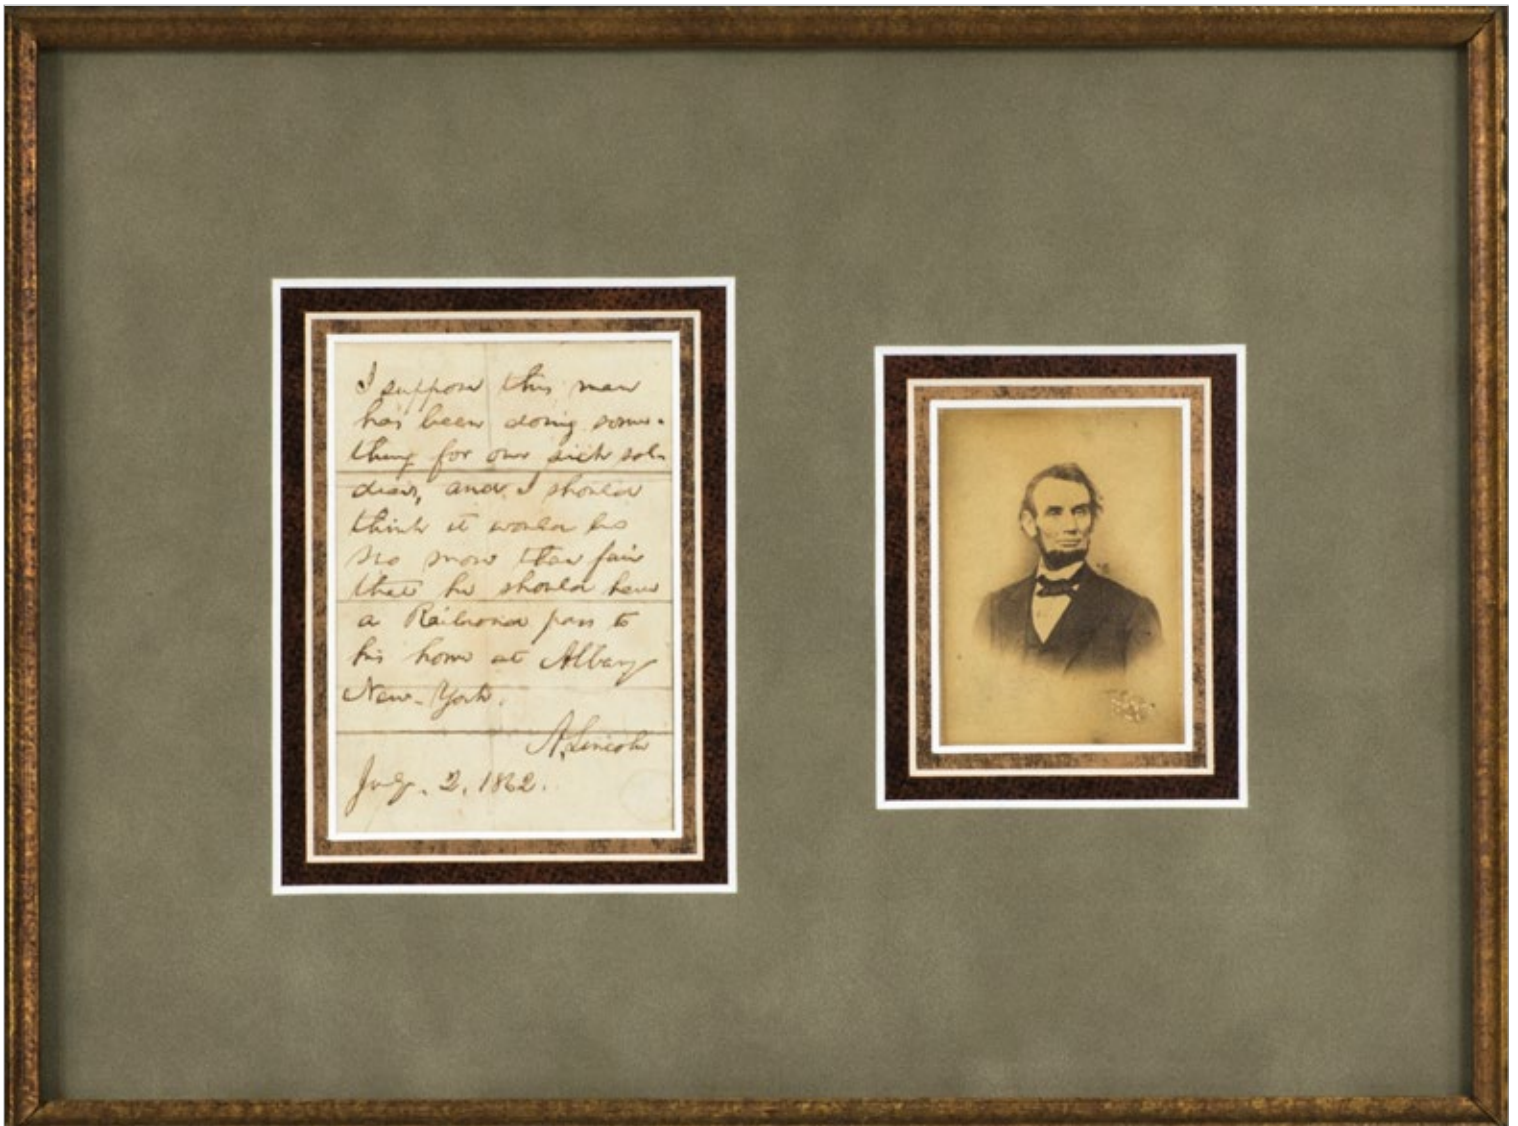 I suppose this man
has been doing some-
thing for our sick sol-
diers, and I should
think it would be
no more than fair
that he should have
a Railroad pass to
his home at Albany
New-York.
A. Lincoln
July. 2. 1862.